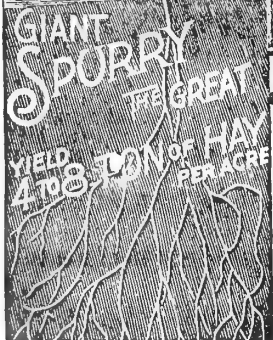 GIANT
SPURRY
THE GREAT
YIELD
4 TO 8 TON OF HAY
PER ACRE